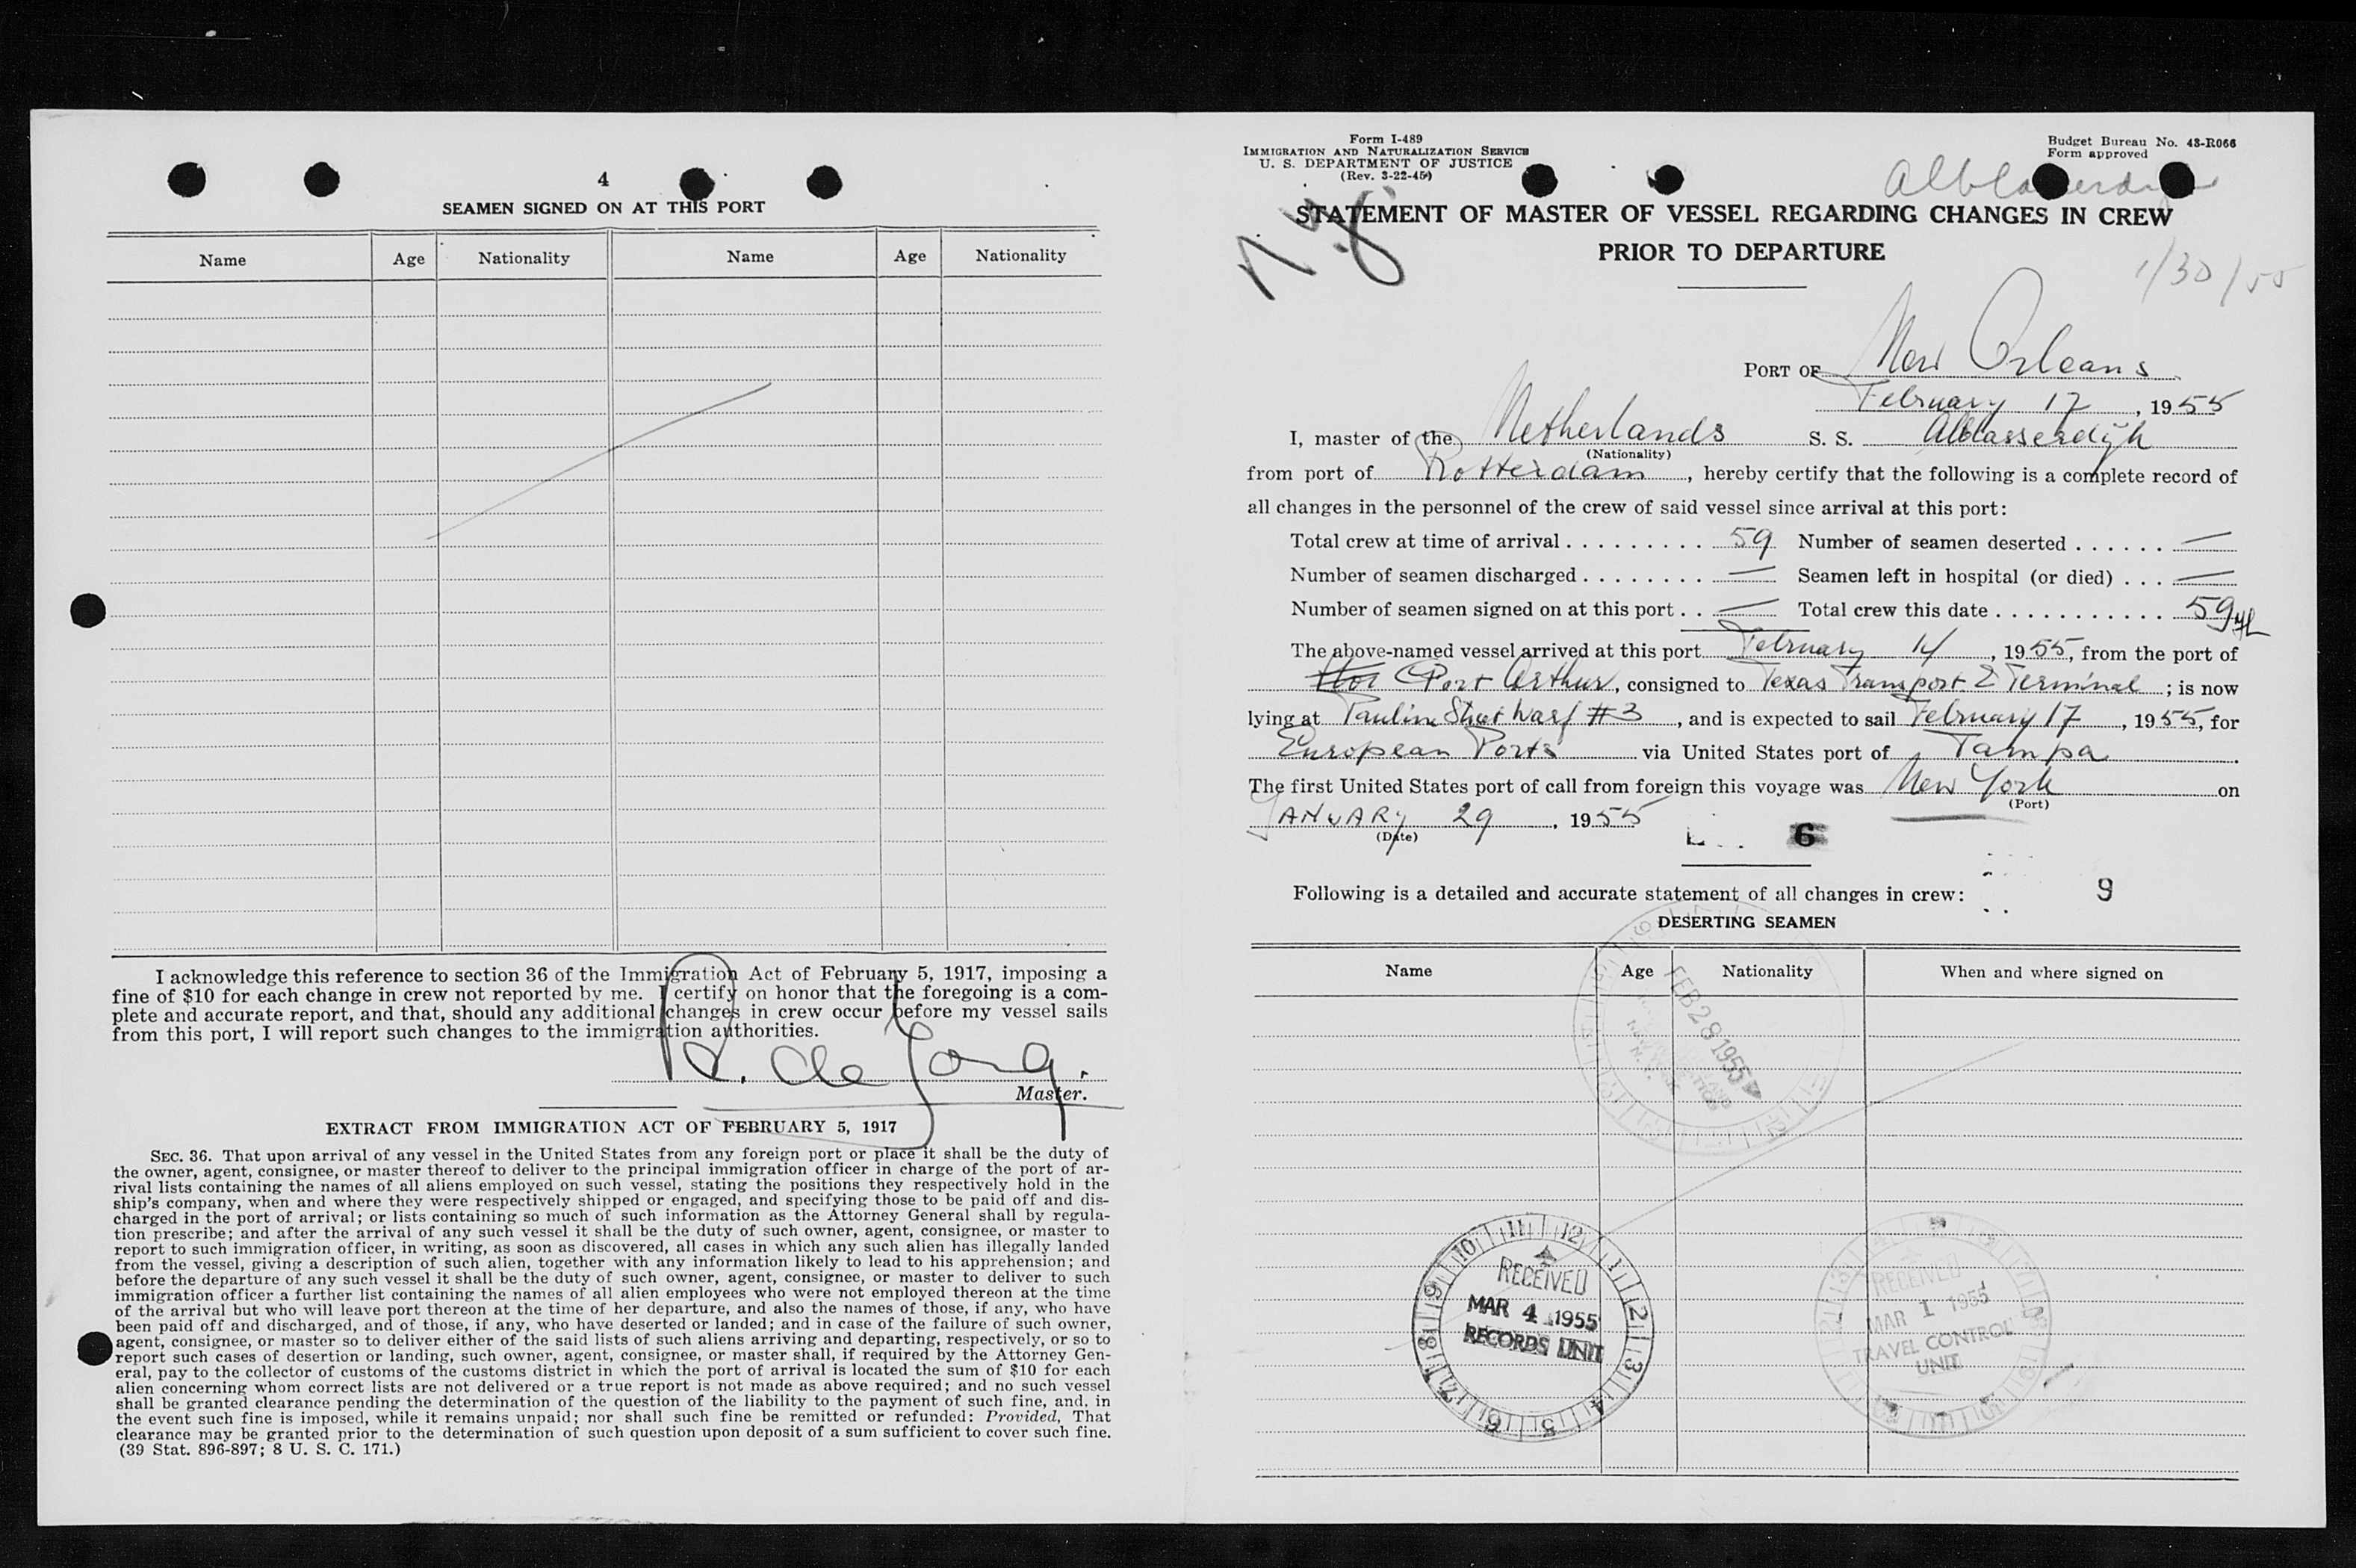 4
SEAMEN SIGNED ON AT THIS PORT
Name Age Nationality Name Age Nationality
I acknowledge this reference to section 36 of the Immigration Act of February 5, 1917, imposing a
fine of $10 for each change in crew not reported by me. I certify on honor that the foregoing is a com-
plete and accurate report, and that, should any additional changes in crew occur before my vessel sails
from this port, I will report such changes to the immigration authorities.
R. de Jong.
Master.
EXTRACT FROM IMMIGRATION ACT OF FEBRUARY 5, 1917
SEC. 36. That upon arrival of any vessel in the United States from any foreign port or place it shall be the duty of
the owner, agent, consignee, or master thereof to deliver to the principal immigration officer in charge of the port of ar-
rival lists containing the names of all aliens employed on such vessel, stating the positions they respectively hold in the
ship's company, when and where they were respectively shipped or engaged, and specifying those to be paid off and dis-
charged in the port of arrival; or lists containing so much of such information as the Attorney General shall by regula-
tion prescribe; and after the arrival of any such vessel it shall be the duty of such owner, agent, consignee, or master to
report to such immigration officer, in writing, as soon as discovered, all cases in which any such alien has illegally landed
from the vessel, giving a description of such alien, together with any information likely to lead to his apprehension; and
before the departure of any such vessel it shall be the duty of such owner, agent, consignee, or master to deliver to such
immigration officer a further list containing the names of all alien employees who were not employed thereon at the time
of the arrival but who will leave port thereon at the time of her departure, and also the names of those, if any, who have
been paid off and discharged, and of those, if any, who have deserted or landed; and in case of the failure of such owner,
agent, consignee, or master so to deliver either of the said lists of such aliens arriving and departing, respectively, or so to
report such cases of desertion or landing, such owner, agent, consignee, or master shall, if required by the Attorney Gen-
eral, pay to the collector of customs of the customs district in which the port of arrival is located the sum of $10 for each
alien concerning whom correct lists are not delivered or a true report is not made as above required; and no such vessel
shall be granted clearance pending the determination of the question of the liability to the payment of such fine, and, in
the event such fine is imposed, while it remains unpaid; nor shall such fine be remitted or refunded: Provided, That
clearance may be granted prior to the determination of such question upon deposit of a sum sufficient to cover such fine.
(39 Stat. 896-897; 8 U. S. C. 171.)
Form I-489
IMMIGRATION AND NATURALIZATION SERVICE
U. S. DEPARTMENT OF JUSTICE
(Rev. 3-22-45)
Budget Bureau No. 43-R066
Form approved
N.Y.
STATEMENT OF MASTER OF VESSEL REGARDING CHANGES IN CREW
PRIOR TO DEPARTURE
1/30/55
PORT OF New Orleans
February 17, 1955
I, master of the Netherlands S. S. Alblasserdijk
(Nationality)
from port of Rotterdam, hereby certify that the following is a complete record of
all changes in the personnel of the crew of said vessel since arrival at this port:
Total crew at time of arrival . . . . . . . . . . 59 Number of seamen deserted . . . . . . —
Number of seamen discharged . . . . . . . . — Seamen left in hospital (or died) . . . —
Number of seamen signed on at this port . . — Total crew this date . . . . . . . . . . . . 59
The above-named vessel arrived at this port February 14, 1955, from the port of
Port Arthur, consigned to Texas Transport & Terminal; is now
lying at Pauline Street Warf #3, and is expected to sail February 17, 1955, for
European Ports via United States port of Tampa.
The first United States port of call from foreign this voyage was New York on
(Port)
JANUARY 29, 1955
(Date)
6
Following is a detailed and accurate statement of all changes in crew:
9
DESERTING SEAMEN
Name Age Nationality When and where signed on
FEB 28 1955
RECEIVED
MAR 4 1955
RECORDS UNIT
RECEIVED
MAR 1 1955
TRAVEL CONTROL
UNIT